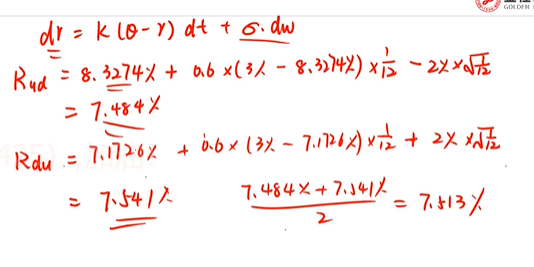 GOLDEN
dr = k(θ-r) dt + σ.dw
Rud = 8.3274% + 0.6 × (3% - 8.3274%) × 1/12 - 2% × √1/12
= 7.484%
Rdu = 7.1726% + 0.6 × (3% - 7.1726%) × 1/12 + 2% × √1/12
= 7.541% (7.484% + 7.541%)/2 = 7.513%